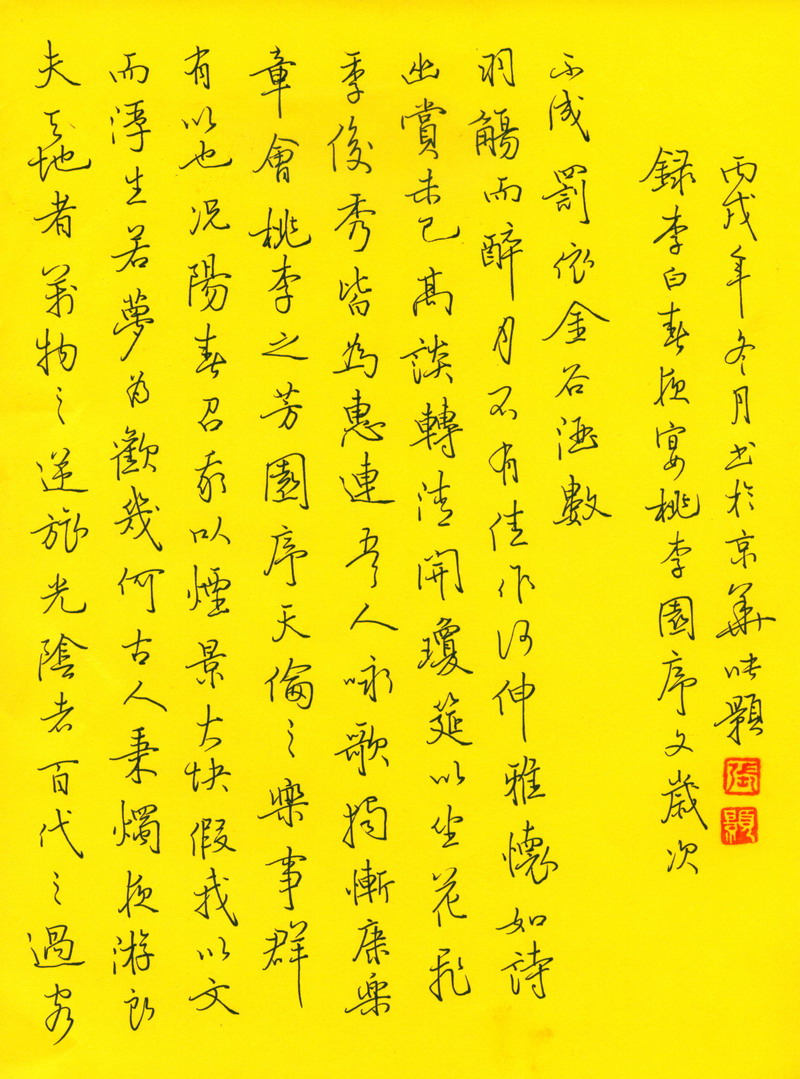 夫天地者萬物之逆旅光陰者百代之過客
而浮生若夢為歡幾何古人秉燭夜游良
有以也况陽春召我以煙景大块假我以文
章會桃李之芳園序天倫之樂事群
季俊秀皆為惠連吾人咏歌獨慚康樂
幽賞未已高談轉清開瓊筵以坐花飛
羽觴而醉月不有佳作何伸雅懷如詩
不成罰依金谷酒數
録李白春夜宴桃李園序文歲次
丙戌年冬月書於京華張
張